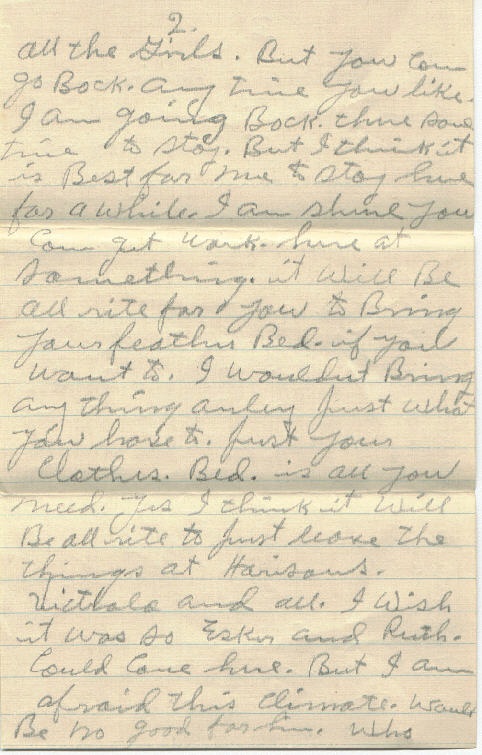 2.
all the Girls. But you Can
go Back. any time you like.
I am going Back. there some
time to stay. But I think it
is Best for me to stay here
for a while. I am shure you
Can get work. here at
something. it Will Be
all rite for you to Bring
your feather Bed. if you
want to. I wouldnt Bring
any thing only Just what
you have to. Just your
Clothes. Bed. is all you
need. yes I think it Will
Be all rite to Just leave the
things at Harisons.
Victrola and all. I Wish
it was so Esker and Ruth.
Could Come here. But I am
afraid this Climate. Would
Be no good for him. Who